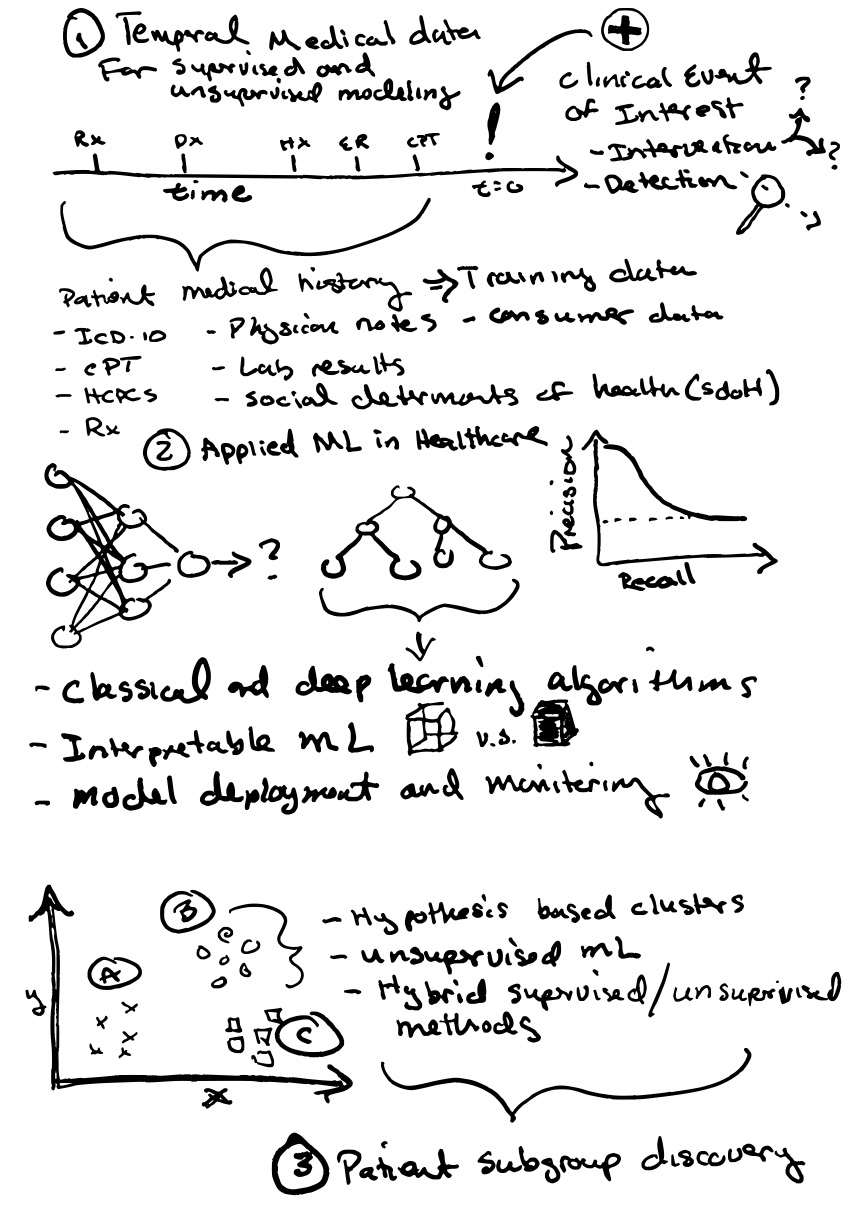 1 Tempral Medical data
For supervised and
unsupervised modeling
Clinical Event
of Interest
- Intervention ?
?
- Detection
Rx Dx Hx ER CPT !
time t=0
Patient medical history ⇒ Training data
- ICD-10 - Physician notes - consumer data
- CPT - Lab results
- HCPCS - social determents of health (SdoH)
- Rx
2 Applied ML in Healthcare
?
Precision
Recall
- Classical and deep learning algorithms
- Interpretable ML v.s.
- Model deployment and monitering
B
A
C
y
x
- Hypothesis based clusters
- unsupervised ML
- Hybrid supervised/unsupervised
methods
3 Patient subgroup discovery